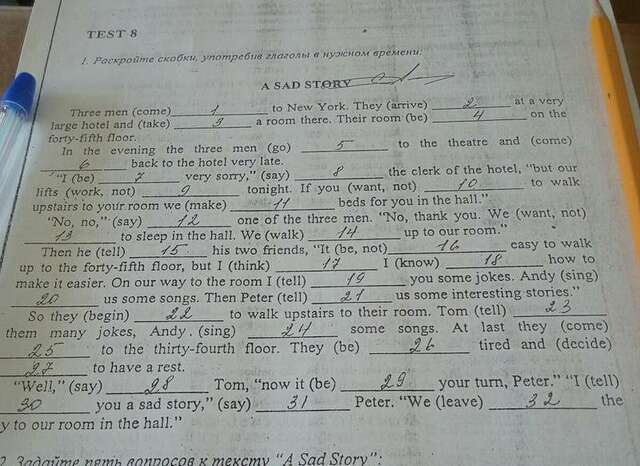 TEST 8
1. Раскройте скобки, употребив глаголы в нужном времени.
A SAD STORY
Three men (come) 1 to New York. They (arrive) 2 at a very
large hotel and (take) 3 a room there. Their room (be) 4 on the
forty-fifth floor.
In the evening the three men (go) 5 to the theatre and (come)
6 back to the hotel very late.
"I (be) 7 very sorry," (say) 8 the clerk of the hotel, "but our
lifts (work, not) 9 tonight. If you (want, not) 10 to walk
upstairs to your room we (make) 11 beds for you in the hall."
"No, no," (say) 12 one of the three men. "No, thank you. We (want, not)
13 to sleep in the hall. We (walk) 14 up to our room."
Then he (tell) 15 his two friends, "It (be, not) 16 easy to walk
up to the forty-fifth floor, but I (think) 17 I (know) 18 how to
make it easier. On our way to the room I (tell) 19 you some jokes. Andy (sing)
20 us some songs. Then Peter (tell) 21 us some interesting stories."
So they (begin) 22 to walk upstairs to their room. Tom (tell) 23
them many jokes, Andy. (sing) 24 some songs. At last they (come)
25 to the thirty-fourth floor. They (be) 26 tired and (decide)
27 to have a rest.
"Well," (say) 28 Tom, "now it (be) 29 your turn, Peter." "I (tell)
30 you a sad story," (say) 31 Peter. "We (leave) 32 the
y to our room in the hall."
2. Задайте пять вопросов к тексту "A Sad Story":